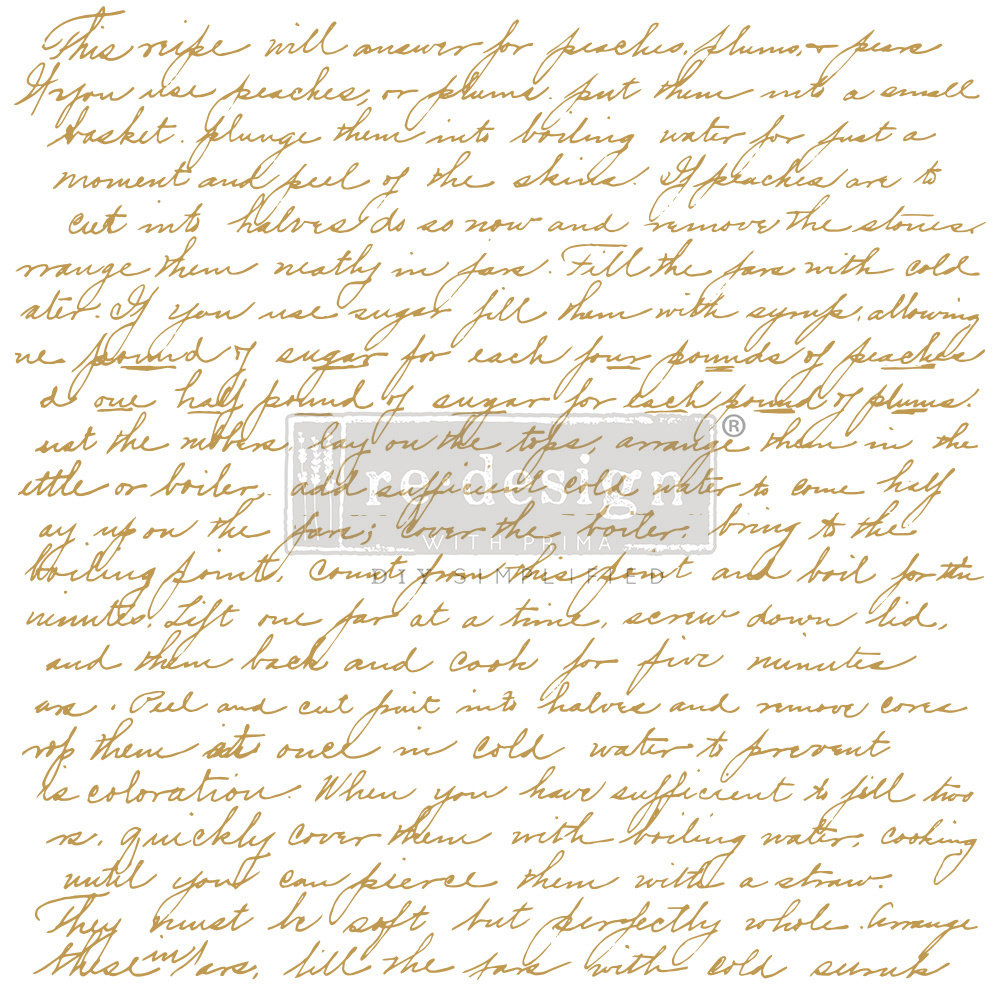 This reipe will answer for peaches, plums, & pears
If you use peaches, or plums. put them into a small
basket. plunge them into boiling water for just a
moment and peel of the skins. If peaches are to
cut into halves do so now and remove the stones.
rrange them neatly in jars. Fill the jars with cold
ater. If you use sugar fill them with syrup, allowing
ne pound of sugar for each four pounds of peaches
d one half pound of sugar for each pound of plums.
ust the rubbers, lay on the tops, arrange them in the
ettle or boiler, add sufficient cold water to come half
ay up on the jars; cover the boiler, bring to the
boiling point, count from this point and boil for ten
minutes. Lift one jar at a time, screw down lid,
and them back and cook for five minutes
ars. Peel and cut fruit into halves and remove cores
rop them at once in cold water to prevent
iscoloration. When you have sufficient to fill two
rs, quickly cover them with boiling water, cooking
until you can pierce them with a straw.
They must be soft, but perfectly whole. Arrange
these in jars, fill the jars with cold
re·design ®
WITH PRIMA
DIY SIMPLIFIED